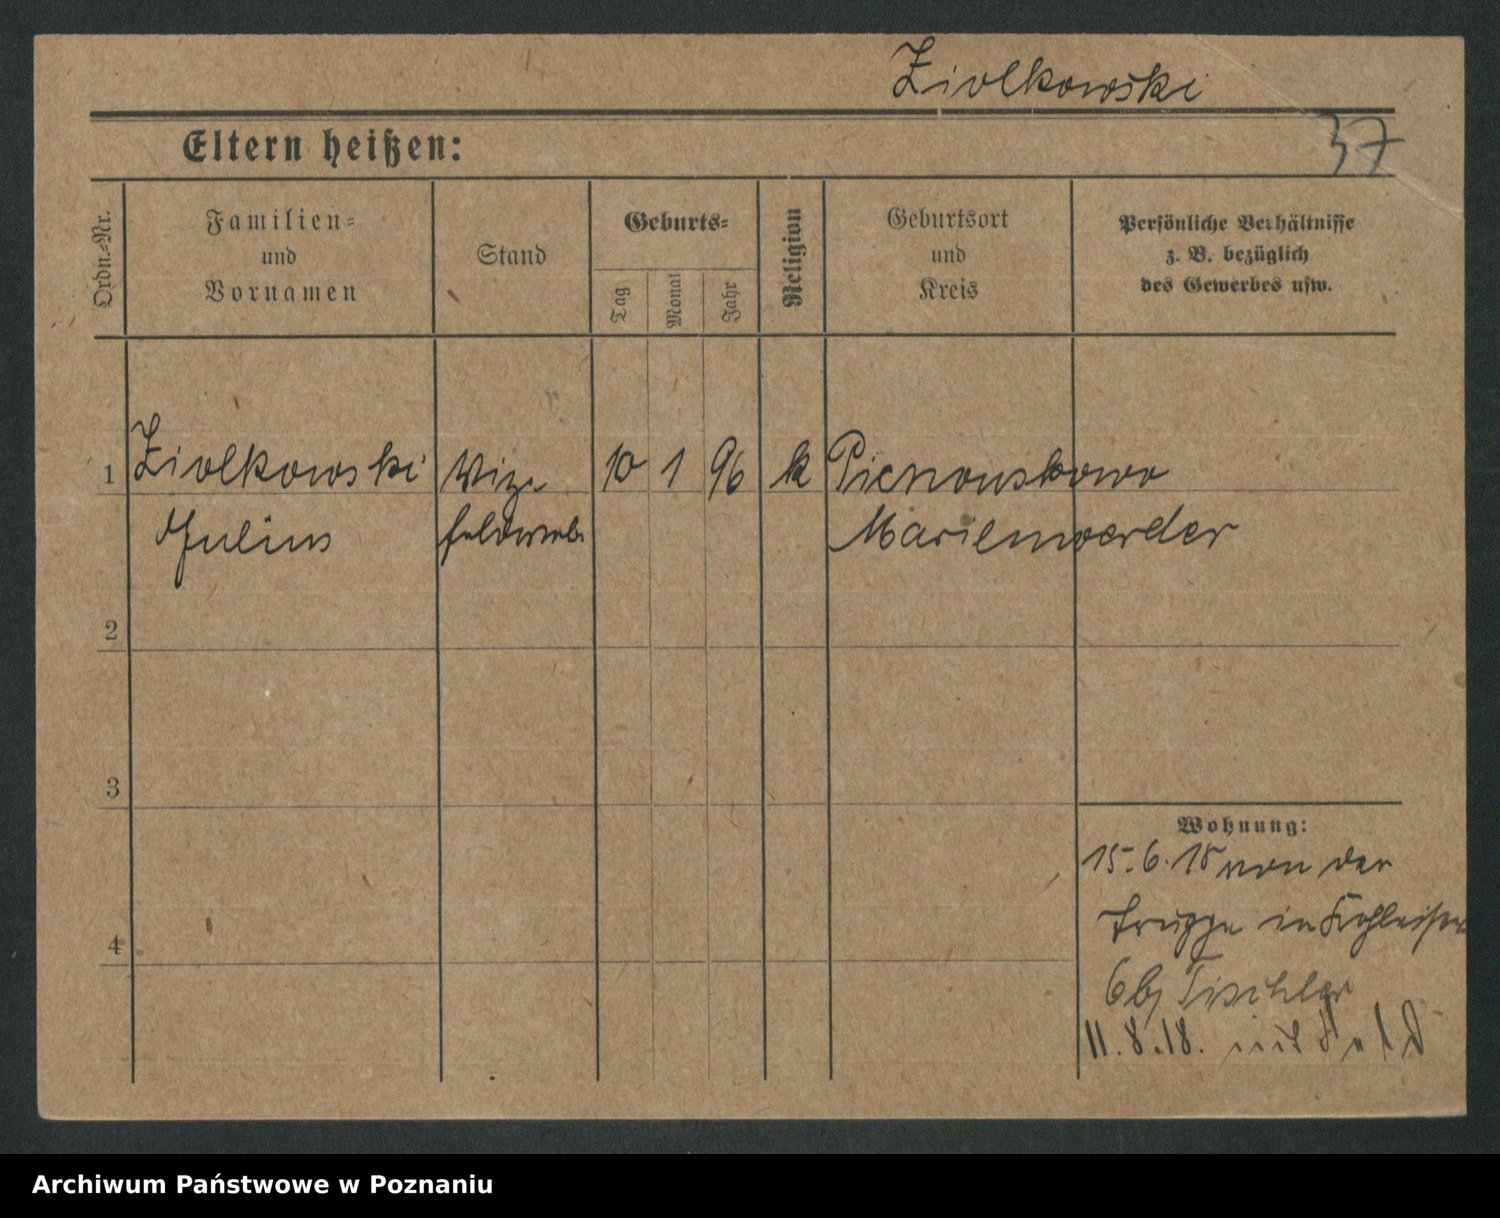 Ziolkowski
37
Eltern heißen:
Ordn.-Nr.
Familien-
und
Vornamen
Stand
Geburts-
Tag
Monat
Jahr
Religion
Geburtsort
und
Kreis
Persönliche Verhältnisse
z. B. bezüglich
des Gewerbes usw.
1 Ziolkowski Vize 10 1 96 k Pienonskowo
Julius feldwebl Marienwerder
2
3
4
Wohnung:
15.6.18 von der
Truppe in
6 bj Tischler
11.8.18. ins Feld
Archiwum Państwowe w Poznaniu